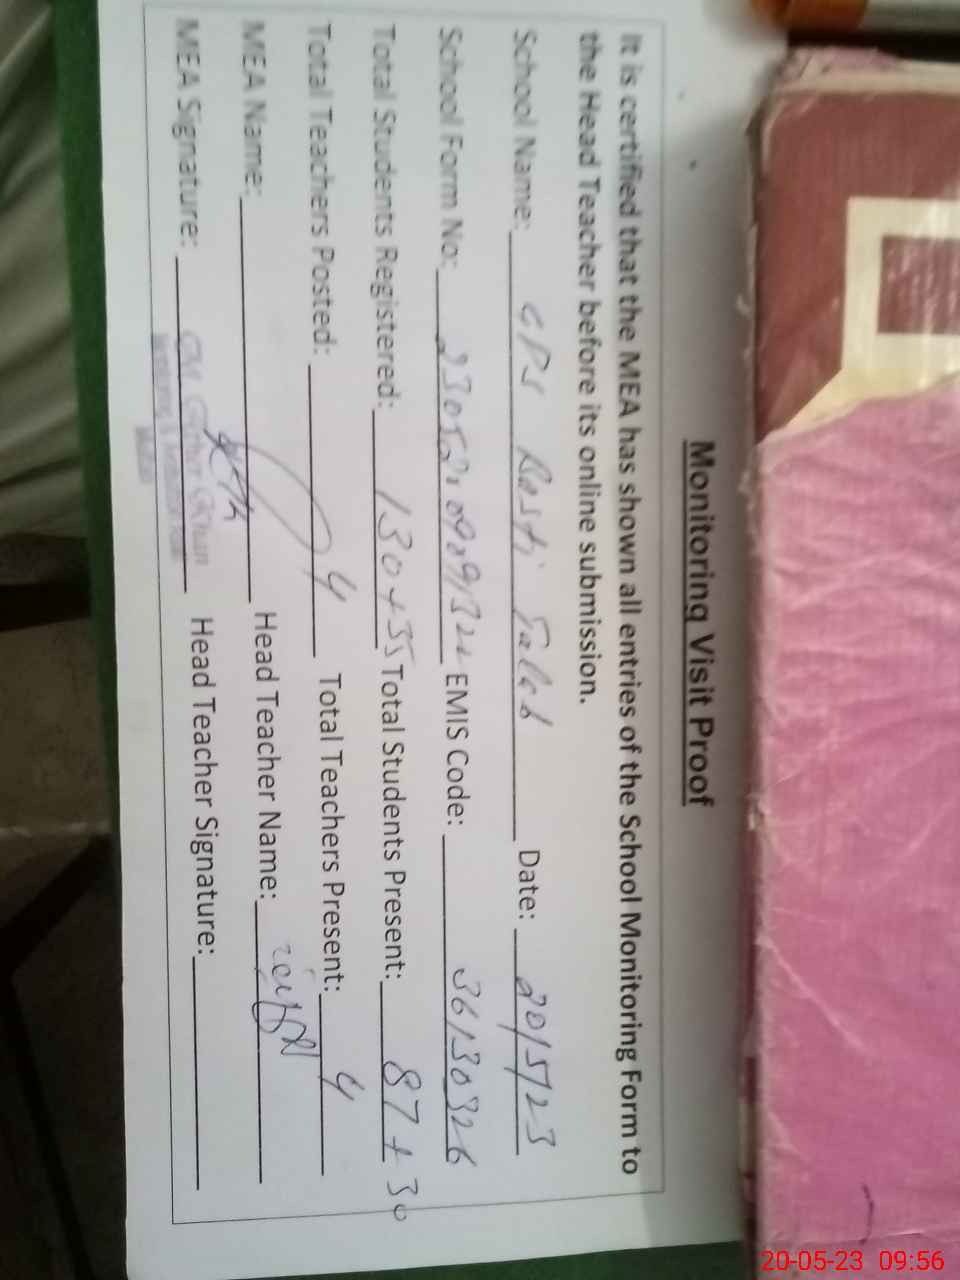 Monitoring Visit Proof
It is certified that the MEA has shown all entries of the School Monitoring Form to
the Head Teacher before its online submission.
School Name: GPS Basti Talab Date: 20/5/23
School Form No: EMIS Code: 36130326
Total Students Registered: 130+35 Total Students Present: 87+30
Total Teachers Posted: 4 Total Teachers Present: 4
MEA Name: Head Teacher Name:
MEA Signature: Head Teacher Signature:
20-05-23 09:56